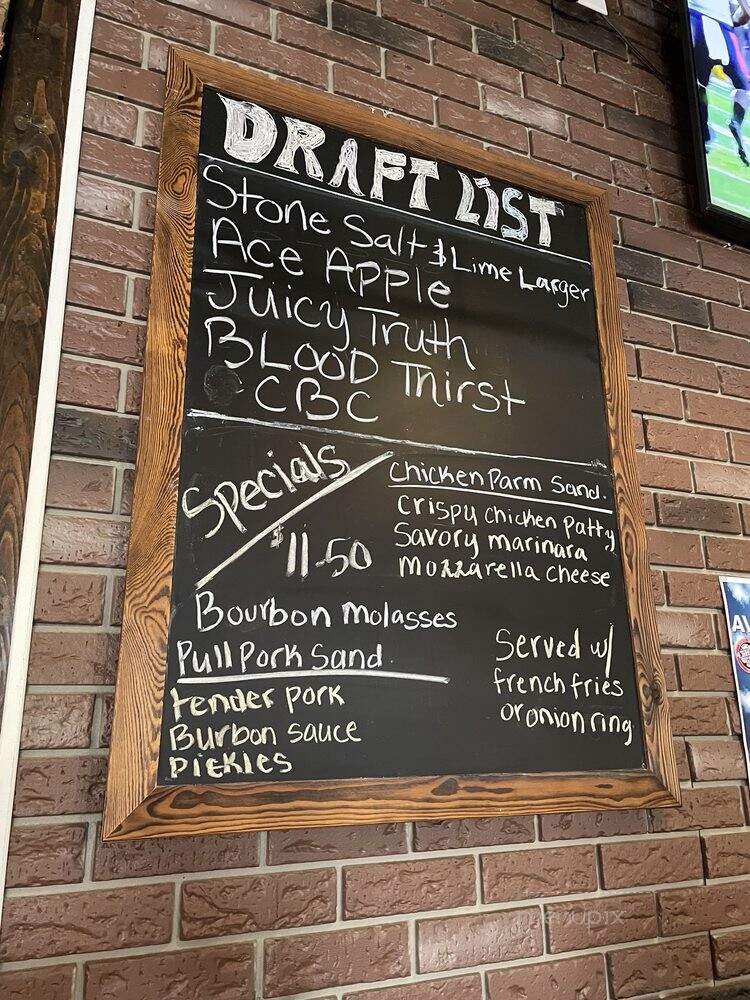 DRAFT LIST
Stone Salt & Lime Larger
Ace Apple
Juicy Truth
BLOOD Thirst
CBC
Specials
$11.50
Chicken Parm Sand.
Crispy Chicken Patty
Savory marinara
mozzarella cheese
Bourbon Molasses
Pull Pork Sand.
tender pork
Burbon sauce
Pickles
Served w/
french fries
or onion ring
menupix